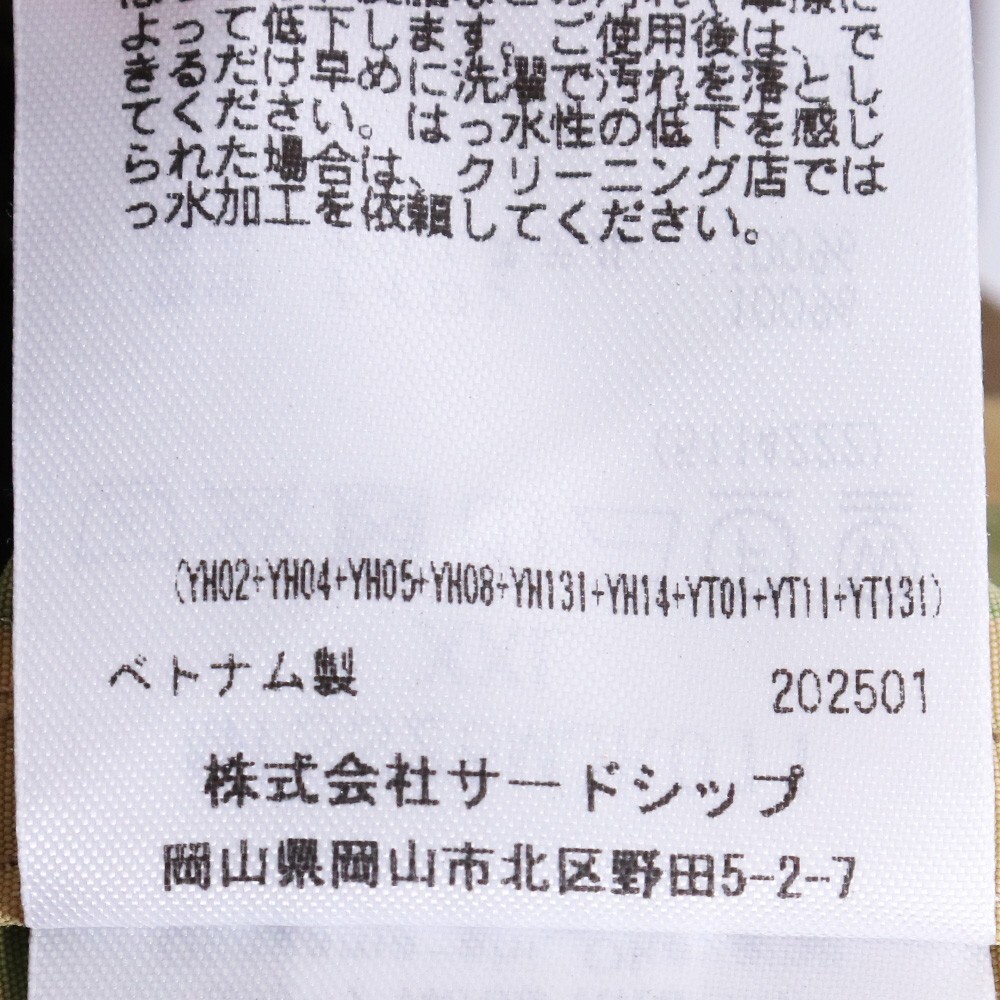 よって低下します。ご使用後は、で
きるだけ早めに洗濯で汚れを落とし
てください。はっ水性の低下を感じ
られた場合は、クリーニング店では
っ水加工を依頼してください。
(YH02+YH04+YH05+YH08+YH131+YH14+YT01+YT11+YT131)
ベトナム製 202501
株式会社サードシップ
岡山県岡山市北区野田5-2-7